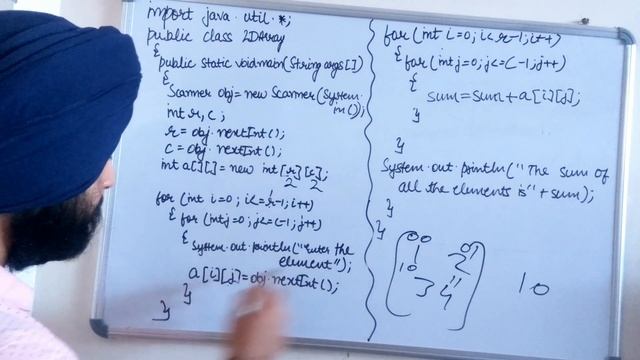 import java.util.*;
public class 2DArray
{
public static void main(String args[])
{
Scanner obj=new Scanner(System.
in());
int r,c;
r=obj.nextInt();
c=obj.nextInt();
int a[][]=new int[r][c];
2 2
for (int i=0;i<=r-1;i++)
{ for(int j=0;j<=c-1;j++)
{
System.out.println("enter the
element");
a[i][j]=obj.nextInt();
}
}
for(int i=0;i<=r-1;i++)
{ for(int j=0;j<=c-1;j++)
{
sum=sum+a[i][j];
}
}
System.out.println("The sum of
all the elements is"+sum);
}
}
00 01
1 2
10 11
3 4
10